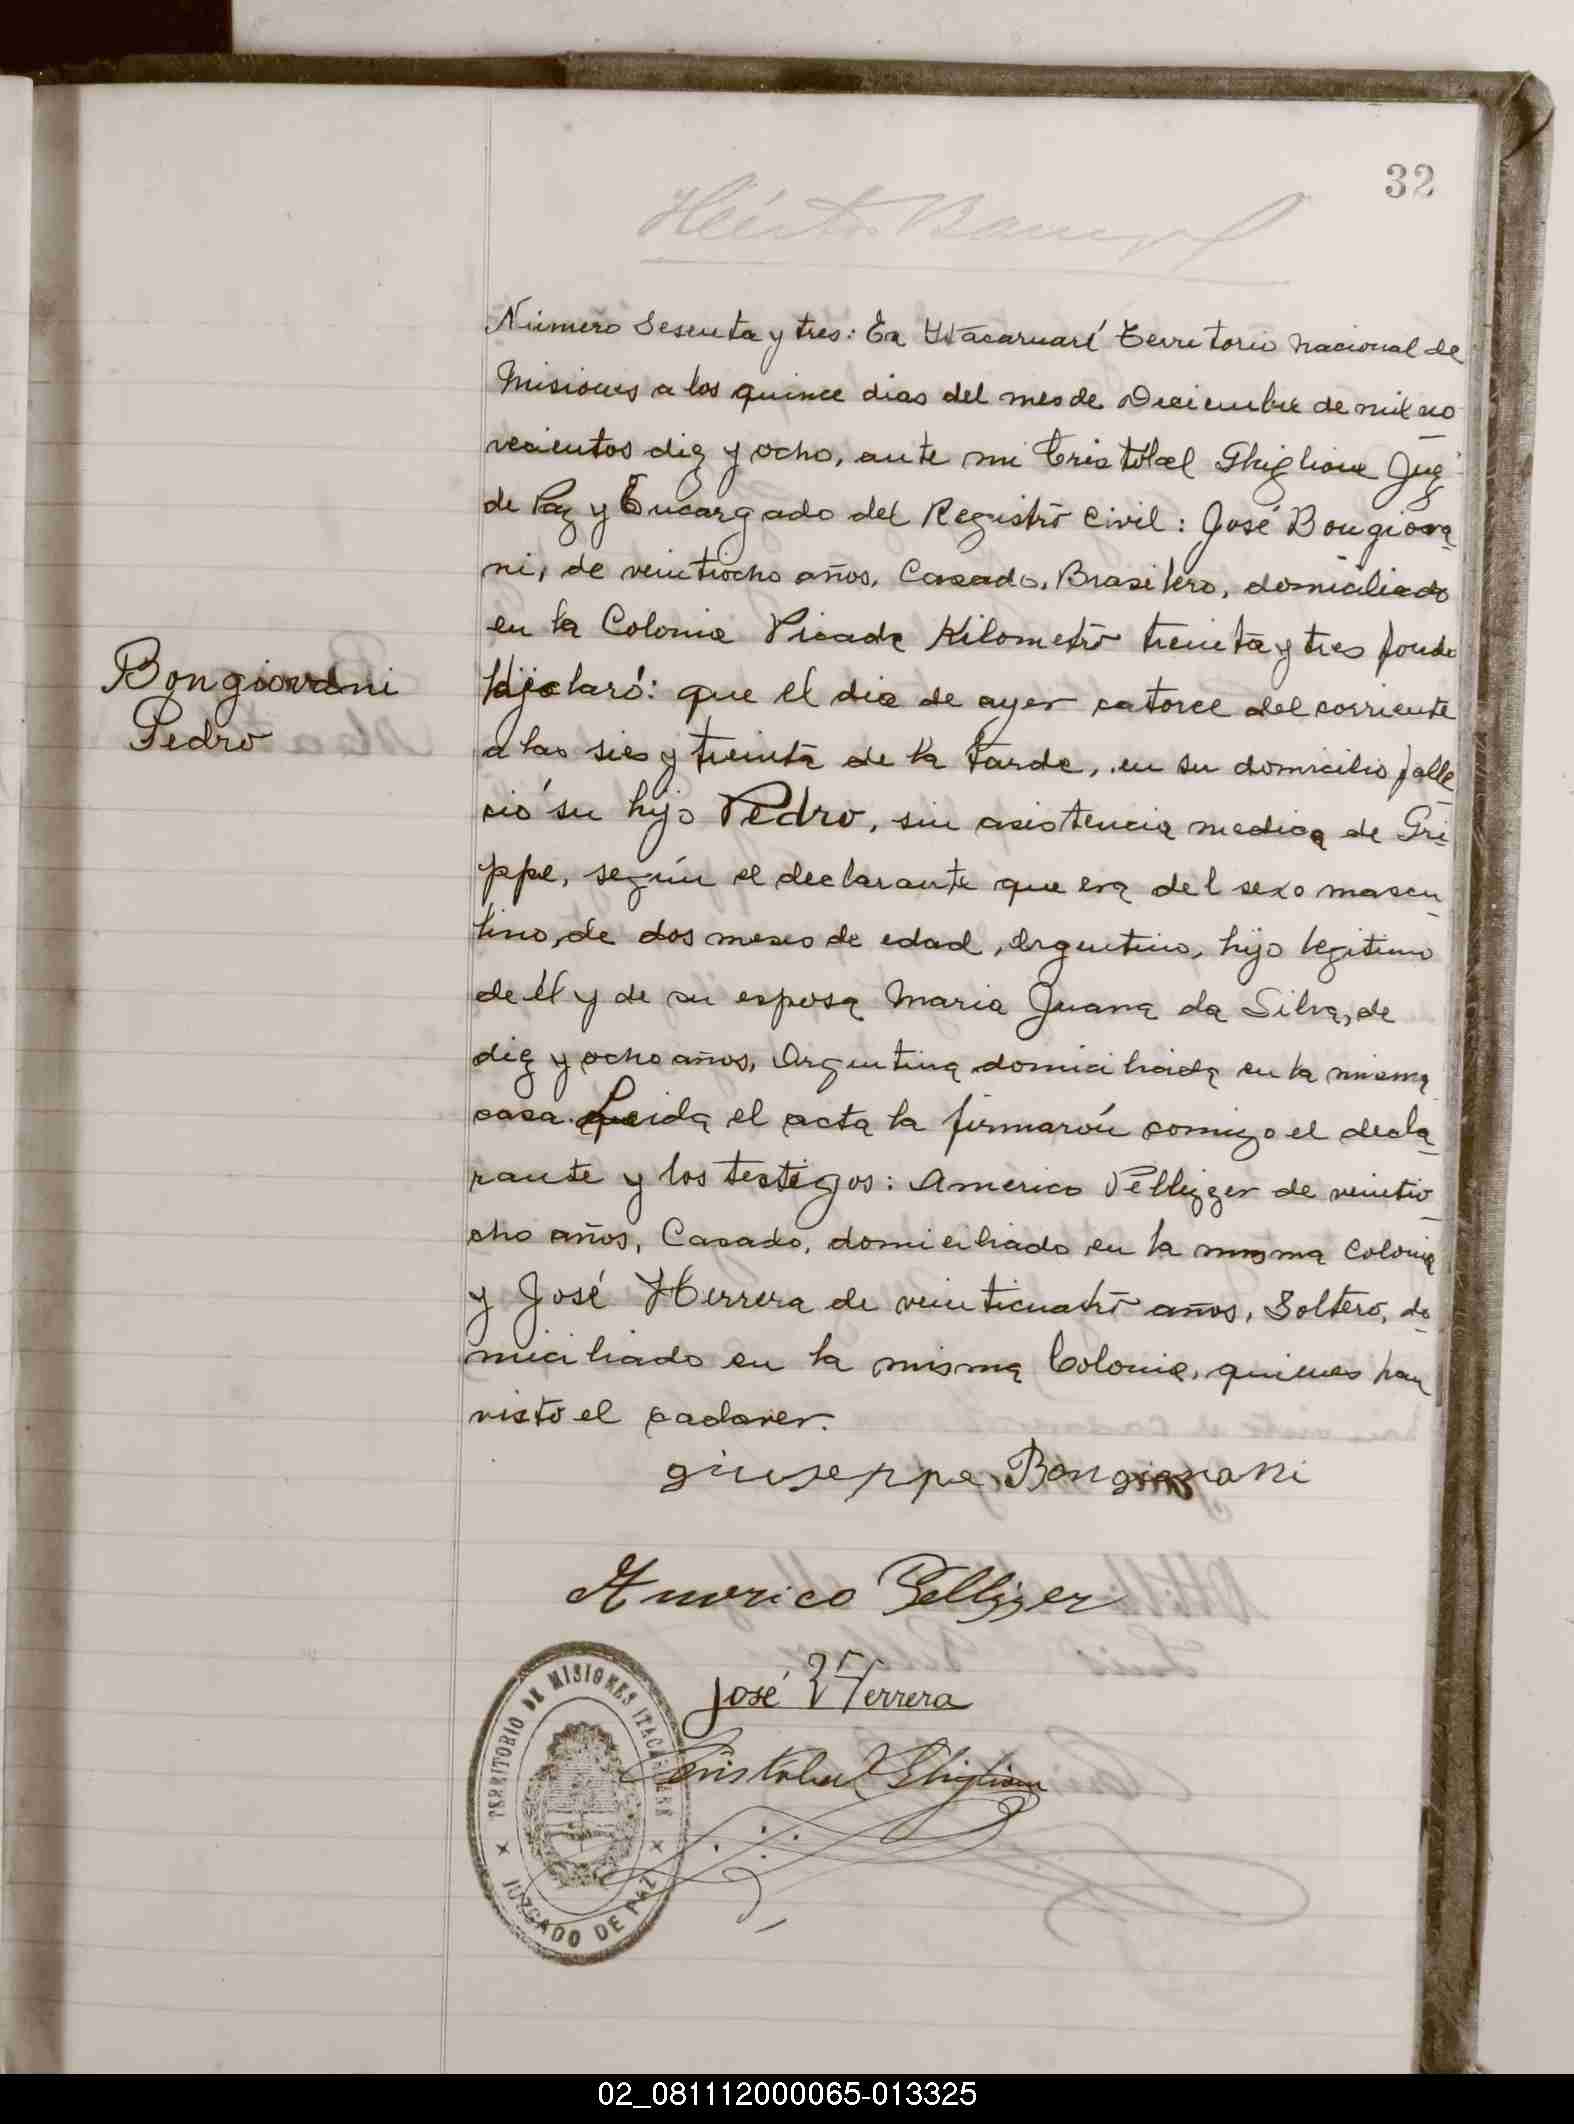 32
Número Sesenta y tres: En Ytacaruaré Territorio nacional de
Misiones a los quince dias del mes de Diciembre de mil no
vecientos diez y ocho, ante mi Cristóbal Ghiglione Juez
de Paz y Encargado del Registro Civil: José Bongiova
ni, de veintiocho años, Casado, Brasilero, domiciliado
en la Colonia Picada Kilometro treinta y tres fondo
claró: que el dia de ayer catorce del corriente
a las sies y treinta de la tarde, en su domicilio falle
ció su hijo Pedro, sin asistencia medica de Gri
ppe, según el declarante que era del sexo mascu
lino, de dos meses de edad, Argentino, hijo legitimo
de él y de su esposa Maria Juana da Silva, de
diez y ocho años, Argentina domiciliada en la misma
casa. Leida el acta la firmarón comigo el decla
rante y los testigos: Americo Pellizzer de veintio
cho años, Casado, domiciliado en la misma Colonia
y José Herrera de veinticuatro años, Soltero, do
miciliado en la misma Colonia, quienes han
visto el cadaver.
Bongiovani
Pedro
giuseppe Bongiovani
Americo Pellizzer
José Herrera
Cristobal Ghiglione
TERRITORIO DE MISIONES ITACARUARE
JUZGADO DE PAZ
02_081112000065-013325